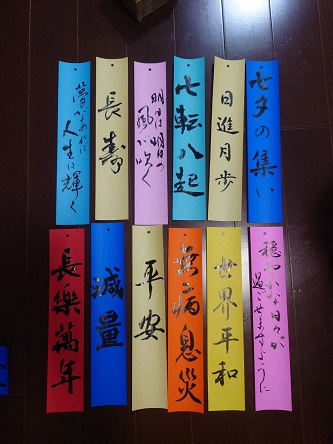 七夕の集い
日進月歩
七転八起
明日は明日の
風が吹く
長寿
夢があれば
人生は輝く
穏やかな日々が
過ごせますように
世界平和
無病息災
平安
減量
長楽萬年